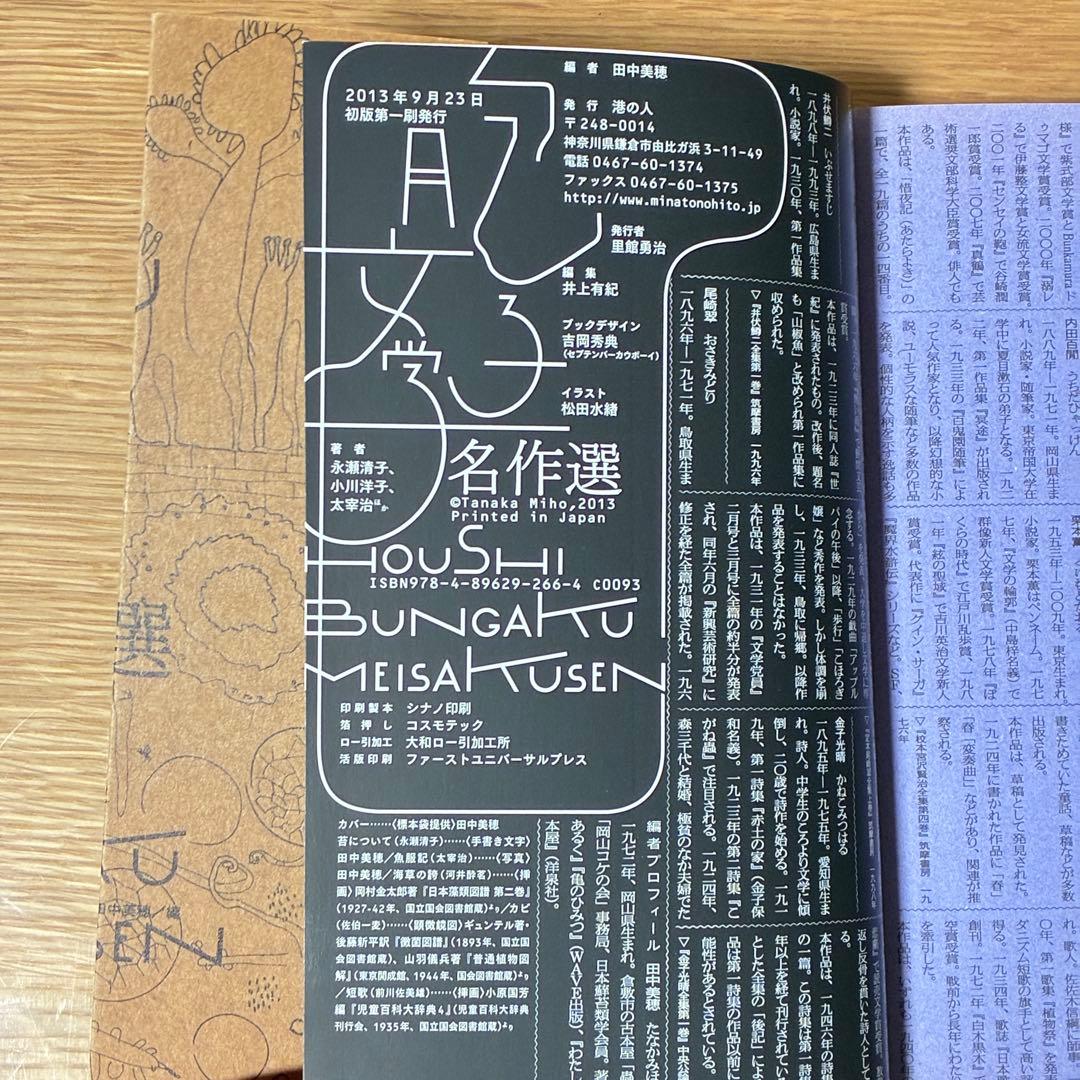 2013年9月23日
初版第一刷発行
胞子文学
名作選
編者 田中美穂
発行 港の人
〒248-0014
神奈川県鎌倉市由比ガ浜3-11-49
電話 0467-60-1374
ファックス 0467-60-1375
http://www.minatonohito.jp
発行者
里舘勇治
編集
井上有紀
ブックデザイン
吉岡秀典
(セプテンバーカウボーイ)
イラスト
松田水緒
著者
永瀬清子、
小川洋子、
太宰治ほか
©Tanaka Miho,2013
Printed in Japan
HOUSHI
ISBN978-4-89629-266-4 C0093
BUNGAKU
MEISAKUSEN
印刷製本 シナノ印刷
箔押し コスモテック
ロー引加工 大和ロー引加工所
活版印刷 ファーストユニバーサルプレス
カバー……〈標本袋提供〉田中美穂
苔について(永瀬清子)……〈手書き文字〉
田中美穂/魚服記(太宰治)……〈写真〉
田中美穂/海草の誇(河井酔茗)……〈挿
画〉岡村金太郎著『日本藻類図譜 第二巻』
(1927-42年、国立国会図書館蔵)より/カビ
(佐伯一麦)……〈顕微鏡図〉ギュンテル著・
後藤新平訳『黴菌図譜』(1893年、国立国
会図書館蔵)、山羽儀兵著『普通植物図
解』(東京開成館、1944年、国会図書館蔵)より
/短歌(前川佐美雄)……〈挿画〉小原国芳
編『児童百科大辞典4』(児童百科大辞典
刊行会、1935年、国立国会図書館蔵)より
井伏鱒二 いぶせますじ
一八九八年―一九九三年。広島県生ま
れ。小説家。一九三〇年、第一作品集
賞受賞。
本作品は、一九二三年に同人誌『世
紀』に発表されたもの。改作後、題名
も「山椒魚」と改められ第一作品集に
収められた。
▽『井伏鱒二全集第一巻』筑摩書房 一九九六年
尾崎翠 おさきみどり
一八九六年―一九七一年。鳥取県生ま
念する。一九二九年の戯曲「アップル
パイの午後」以降、「歩行」「こほろぎ
嬢」など秀作を発表。しかし体調を崩
し、一九三三年、鳥取に帰郷、以降作
品を発表することはなかった。
本作品は、一九三一年の『文学党員』
二月号と三月号に全篇の約半分が発表
され、同年六月の『新興芸術研究』に
修正を経た全篇が掲載された。一九六
金子光晴 かねこみつはる
一八九五年―一九七五年。愛知県生ま
れ。詩人。中学生のころより文学に傾
倒し、二〇歳で詩作を始める。一九一
九年、第一詩集『赤土の家』(金子保
和名義)。一九二三年の第二詩集『こ
がね蟲』で注目される。一九二四年、
森三千代と結婚、極貧のなか夫婦でた
返し反骨を貫いた詩人として
る。
本作品は、一九四六年の詩集
の一篇。この詩集は第一詩集
年以上を経て刊行されている
とした全集の「後記」によ
品は第一詩集の作品以前に
能性があるとされている。
▽『金子光晴全集第一巻』中央公論
編者プロフィール 田中美穂 たなかみほ
一九七二年、岡山県生まれ。倉敷市の古本屋「蟲
「岡山コケの会」事務局、日本蘚苔類学会員。著
あるく』『亀のひみつ』(WAVE出版)、『わたし
本屋』(洋泉社)。
様』で紫式部文学賞とBunkamuraド
ゥマゴ文学賞受賞。二〇〇〇年『溺レ
る』で伊藤整文学賞と女流文学賞受賞。
二〇〇一年『センセイの鞄』で谷崎潤
一郎賞受賞。二〇〇七年『真鶴』で芸
術選奨文部科学大臣賞受賞。俳人でも
ある。
本作品は、『惜夜記(あたらよき)』の
一篇で、全一九篇のうちの一四番目。
内田百閒 うちだひゃっけん
一八八九年―一九七一年。岡山県生ま
れ。小説家・随筆家。東京帝国大学在
学中に夏目漱石の弟子となる。一九二
二年、第一作品集『冥途』が出版され
る。一九三三年の『百鬼園随筆』によ
って人気作家となり、以降幻想的な小
説、ユーモラスな随筆など多数の作品
を発表。
一九五三年―二〇〇九年。東京生まれ。
小説家。栗本薫はペンネーム。一九七
七年、「文学の輪郭」(中島梓名義)で
群像新人文学賞受賞。一九七八年『ぼ
くらの時代』で江戸川乱歩賞、一九八
一年『絃の聖域』で吉川英治文学新人
賞受賞。代表作に『グイン・サーガ』
『魔界水滸伝』シリーズなど。SF、
書きためていた童話、草稿も多数
出版される。
本作品は、草稿として発見された。
一九二四年に書かれた作品に「春」
「春 変奏曲」などがあり、関連が推
察される。
▽『校本宮沢賢治全集第四巻』筑摩書房 一九
七六年
田中美穂/編